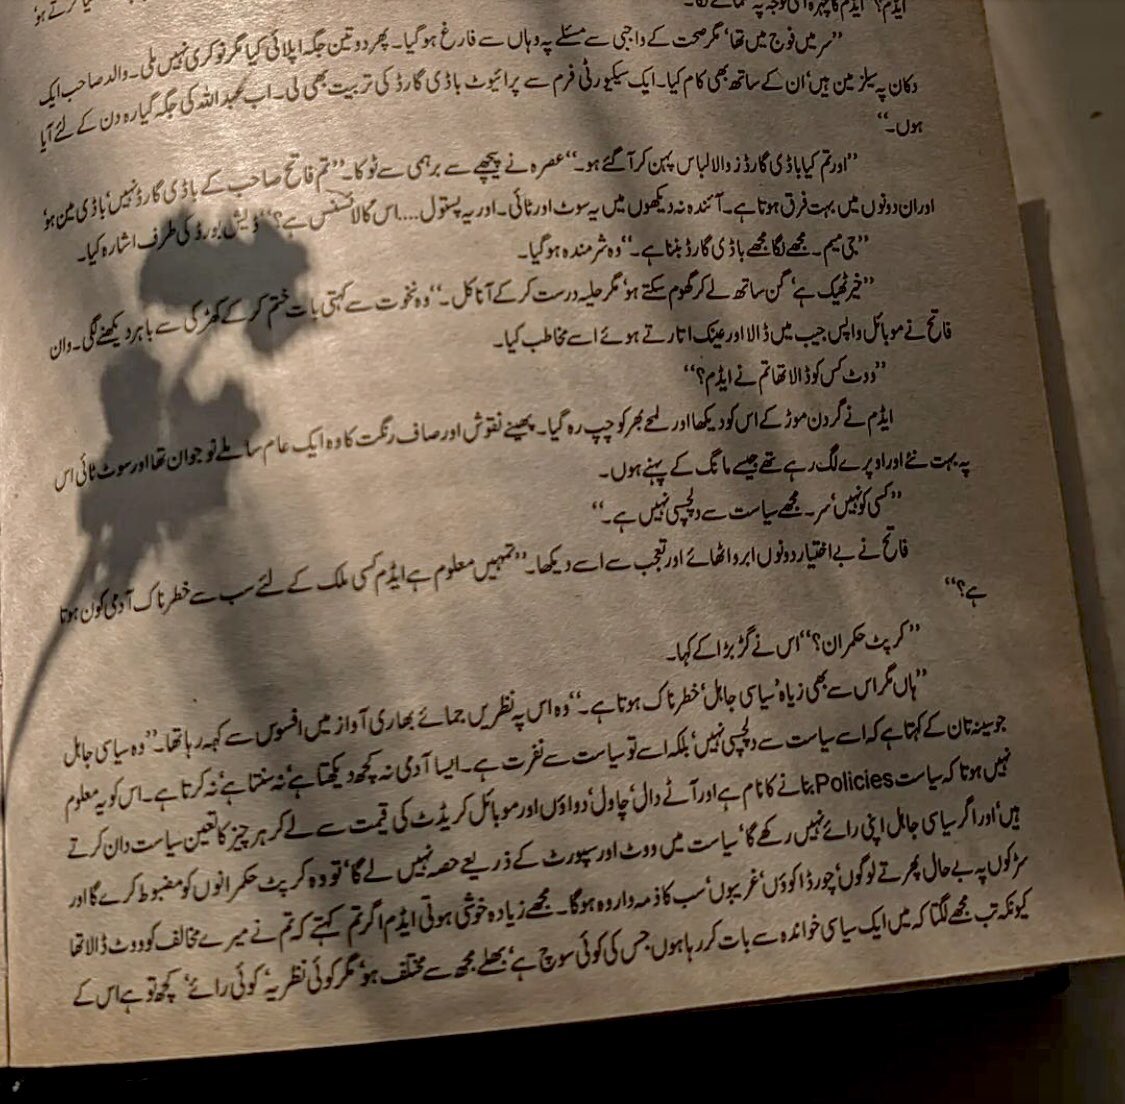 ایڈم؟“ ایڈم کا چہرہ اسی توجہ پہ
”سر میں فوج میں تھا‘ مگر صحت کے واجبی سے مسئلے پہ وہاں سے فارغ ہو گیا۔ پھر دو تین جگہ اپلائی کیا مگر نوکری نہیں ملی۔ والد صاحب ایک
دکان پہ سیلز مین ہیں‘ ان کے ساتھ بھی کام کیا۔ ایک سیکیورٹی فرم سے پرائیوٹ باڈی گارڈ کی تربیت بھی لی۔ اب عبداللہ کی جگہ گیارہ دن کے لئے آیا
ہوں۔“
”اور تم کیا باڈی گارڈز والا لباس پہن کر آ گئے ہو۔“ عصرہ نے پیچھے سے برہمی سے ٹوکا۔ ”تم فاتح صاحب کے باڈی گارڈ نہیں‘ باڈی مین ہو
اور ان دونوں میں بہت فرق ہوتا ہے۔ آئندہ نہ دیکھوں میں یہ سوٹ اور ٹائی۔ اور یہ پستول.... اس کا لائسنس ہے؟“ ڈیش بورڈ کی طرف اشارہ کیا۔
”جی میم۔ مجھے لگا مجھے باڈی گارڈ بننا ہے۔“ وہ شرمندہ ہو گیا۔
”خیر ٹھیک ہے‘ گن ساتھ لے کر گھوم سکتے ہو‘ مگر حلیہ درست کر کے آنا کل۔“ وہ نخوت سے کہتی بات ختم کر کے کھڑکی سے باہر دیکھنے لگی۔ وان
فاتح نے موبائل واپس جیب میں ڈالا اور عینک اتارتے ہوئے اسے مخاطب کیا۔
”ووٹ کس کو ڈالا تھا تم نے ایڈم؟“
ایڈم نے گردن موڑ کے اس کو دیکھا اور لمحے بھر کو چپ رہ گیا۔ پھینے نقوش اور صاف رنگت کا وہ ایک عام سا ملے نوجوان تھا اور سوٹ ٹائی اس
پہ بہت نئے اور اوپرے لگ رہے تھے جیسے مانگ کے پہنے ہوں۔
”کسی کو نہیں‘ سر۔ مجھے سیاست سے دلچسپی نہیں ہے۔“
فاتح نے بے اختیار دونوں ابرو اٹھائے اور تعجب سے اسے دیکھا۔ ”تمہیں معلوم ہے ایڈم کسی ملک کے لئے سب سے خطرناک آدمی کون ہوتا
ہے؟“
”کرپٹ حکمران؟“ اس نے گڑبڑا کے کہا۔
”ہاں مگر اس سے بھی زیادہ ’سیاسی جاہل‘ خطرناک ہوتا ہے۔“ وہ اس پہ نظریں جمائے بھاری آواز میں افسوس سے کہہ رہا تھا۔ ”وہ سیاسی جاہل
جو سینہ تان کے کہتا ہے کہ اسے سیاست سے دلچسپی نہیں‘ بلکہ اسے تو سیاست سے نفرت ہے۔ ایسا آدمی نہ کچھ دیکھتا ہے‘ نہ سنتا ہے‘ نہ کرتا ہے۔ اس کو یہ معلوم
نہیں ہوتا کہ سیاست Policies بنانے کا نام ہے اور آٹے دال‘ چاول‘ دواؤں اور موبائل کریڈٹ کی قیمت سے لے کر ہر چیز کا تعین سیاست دان کرتے
ہیں‘ اور اگر سیاسی جاہل اپنی رائے نہیں رکھے گا‘ سیاست میں ووٹ اور سپورٹ کے ذریعے حصہ نہیں لے گا‘ تو وہ کرپٹ حکمرانوں کو مضبوط کرے گا اور
سڑکوں پہ بے حال پھرتے لوگوں‘ چور ڈاکوؤں‘ غریبوں‘ سب کا ذمہ دار وہ ہوگا۔ مجھے زیادہ خوشی ہوتی ایڈم اگر تم کہتے کہ تم نے میرے مخالف کو ووٹ ڈالا تھا
کیونکہ تب مجھے لگتا کہ میں ایک سیاسی خواندہ سے بات کر رہا ہوں جس کی کوئی سوچ ہے‘ بھلے مجھ سے مختلف ہو‘ مگر کوئی نظریہ‘ کوئی رائے‘ کچھ تو ہے اس کے